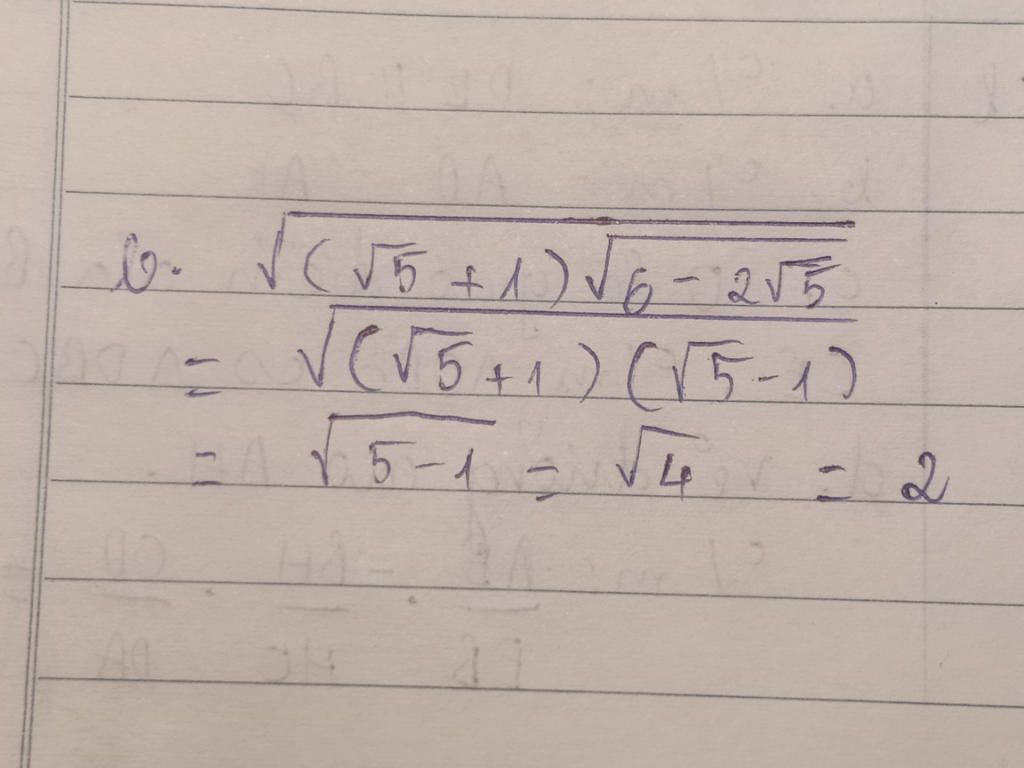 b. √((√5 + 1)√(6 - 2√5))
= √((√5 + 1)(√5 - 1))
= √(5 - 1) = √4 = 2